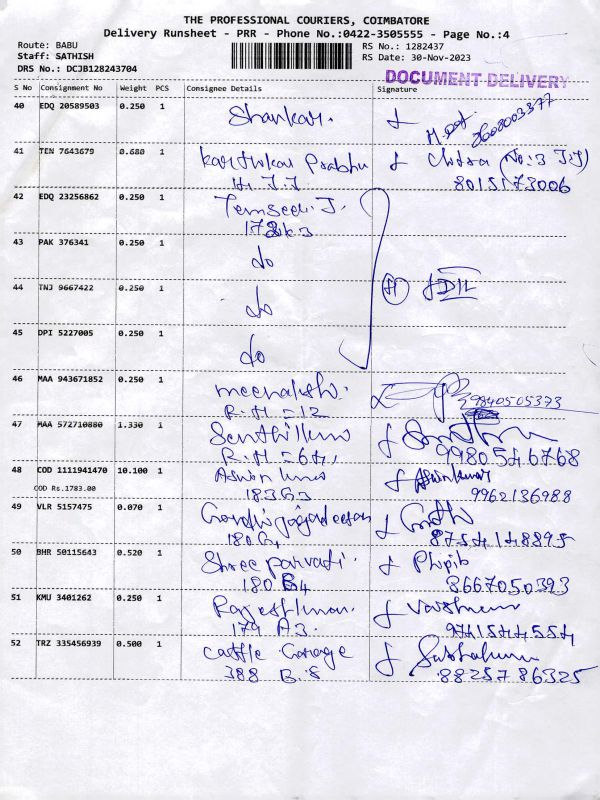 THE PROFESSIONAL COURIERS, COIMBATORE
Delivery Runsheet - PRR - Phone No.:0422-3505555 - Page No.:4
Route: BABU
Staff: SATHISH
DRS No.: DCJB128243704
RS No.: 1282437
RS Date: 30-Nov-2023
DOCUMENT DELIVERY
S No Consignment No Weight PCS Consignee Details Signature
40 EDQ 20589503 0.250 1 Shankar.
41 TEN 7643679 0.680 1 Karthikai Prabhu Chitra (No:3 J.J)
H. J.J 8015173006
42 EDQ 23256862 0.250 1
43 PAK 376341 0.250 1 do
44 TNJ 9667422 0.250 1 do
45 DPI 5227005 0.250 1 do
46 MAA 943671852 0.250 1 meenakshi. 9840505373
R.H = 12
47 MAA 572710880 1.330 1
R.H = 64, 9980546768
48 COD 1111941470 10.100 1 Aswin Ashinkumar
COD Rs.1783.00 183G3 9962136988
49 VLR 5157475 0.070 1
180 G4 8754148895
50 BHR 50115643 0.520 1 Shree parvati.
180 B4 8667050393
51 KMU 3401262 0.250 1
179 A3.
52 TRZ 335456939 0.500 1 Castle Garage
388 B.S 8825786325